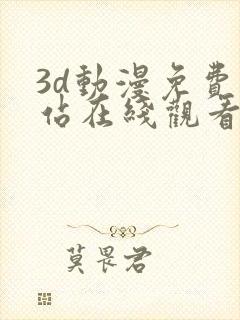 3d動漫免費
佔在綫觀看
莫畏君